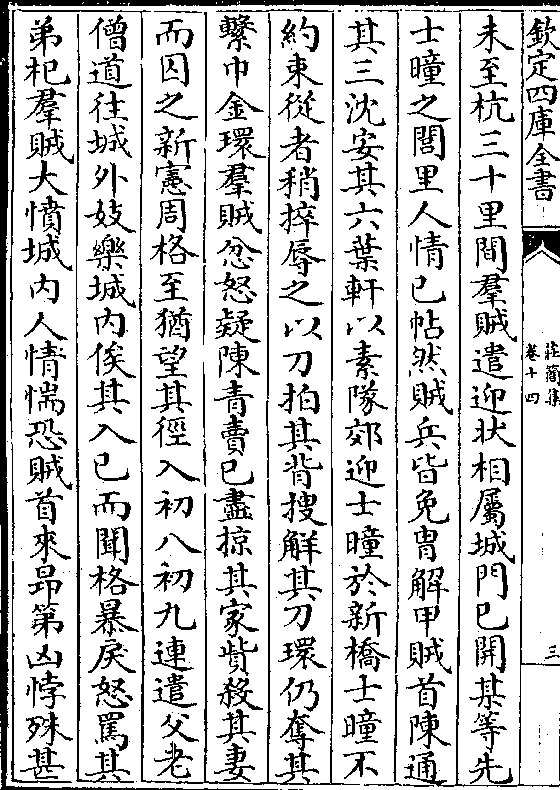 欽定四庫全書
莊簡集
卷十四
三
未至杭三十里間羣賊遣迎狀相屬城門已開某等先
士瞳之閭里人情已帖然賊兵皆免冑解甲賊首陳通
其三沈安其六葉軒以素隊郊迎士瞳於新橋士瞳不
約束從者稍捽辱之以刀拍其背搜觧其刀環仍奪其
繫巾金環羣賊忿怒疑陳青賣已盡掠其家貲殺其妻
而囚之新憲周格至猶望其徑入初八初九連遣父老
僧道往城外妓樂城内俟其入已而聞格暴戾怒罵其
弟杞羣賊大憤城内人情惴恐賊首來昂第凶悖殊甚